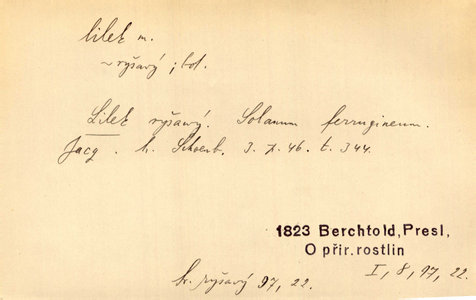 lilek m.
~ ryšavý; bot.
Lilek ryšavý. Solanum ferrugineum.
Jacq. h. Schoenb. 3. p. 46. t. 344.
1823 Berchtold, Presl,
O přir. rostlin
I, 8, 97, 22.
hr. ryšavý 97, 22.